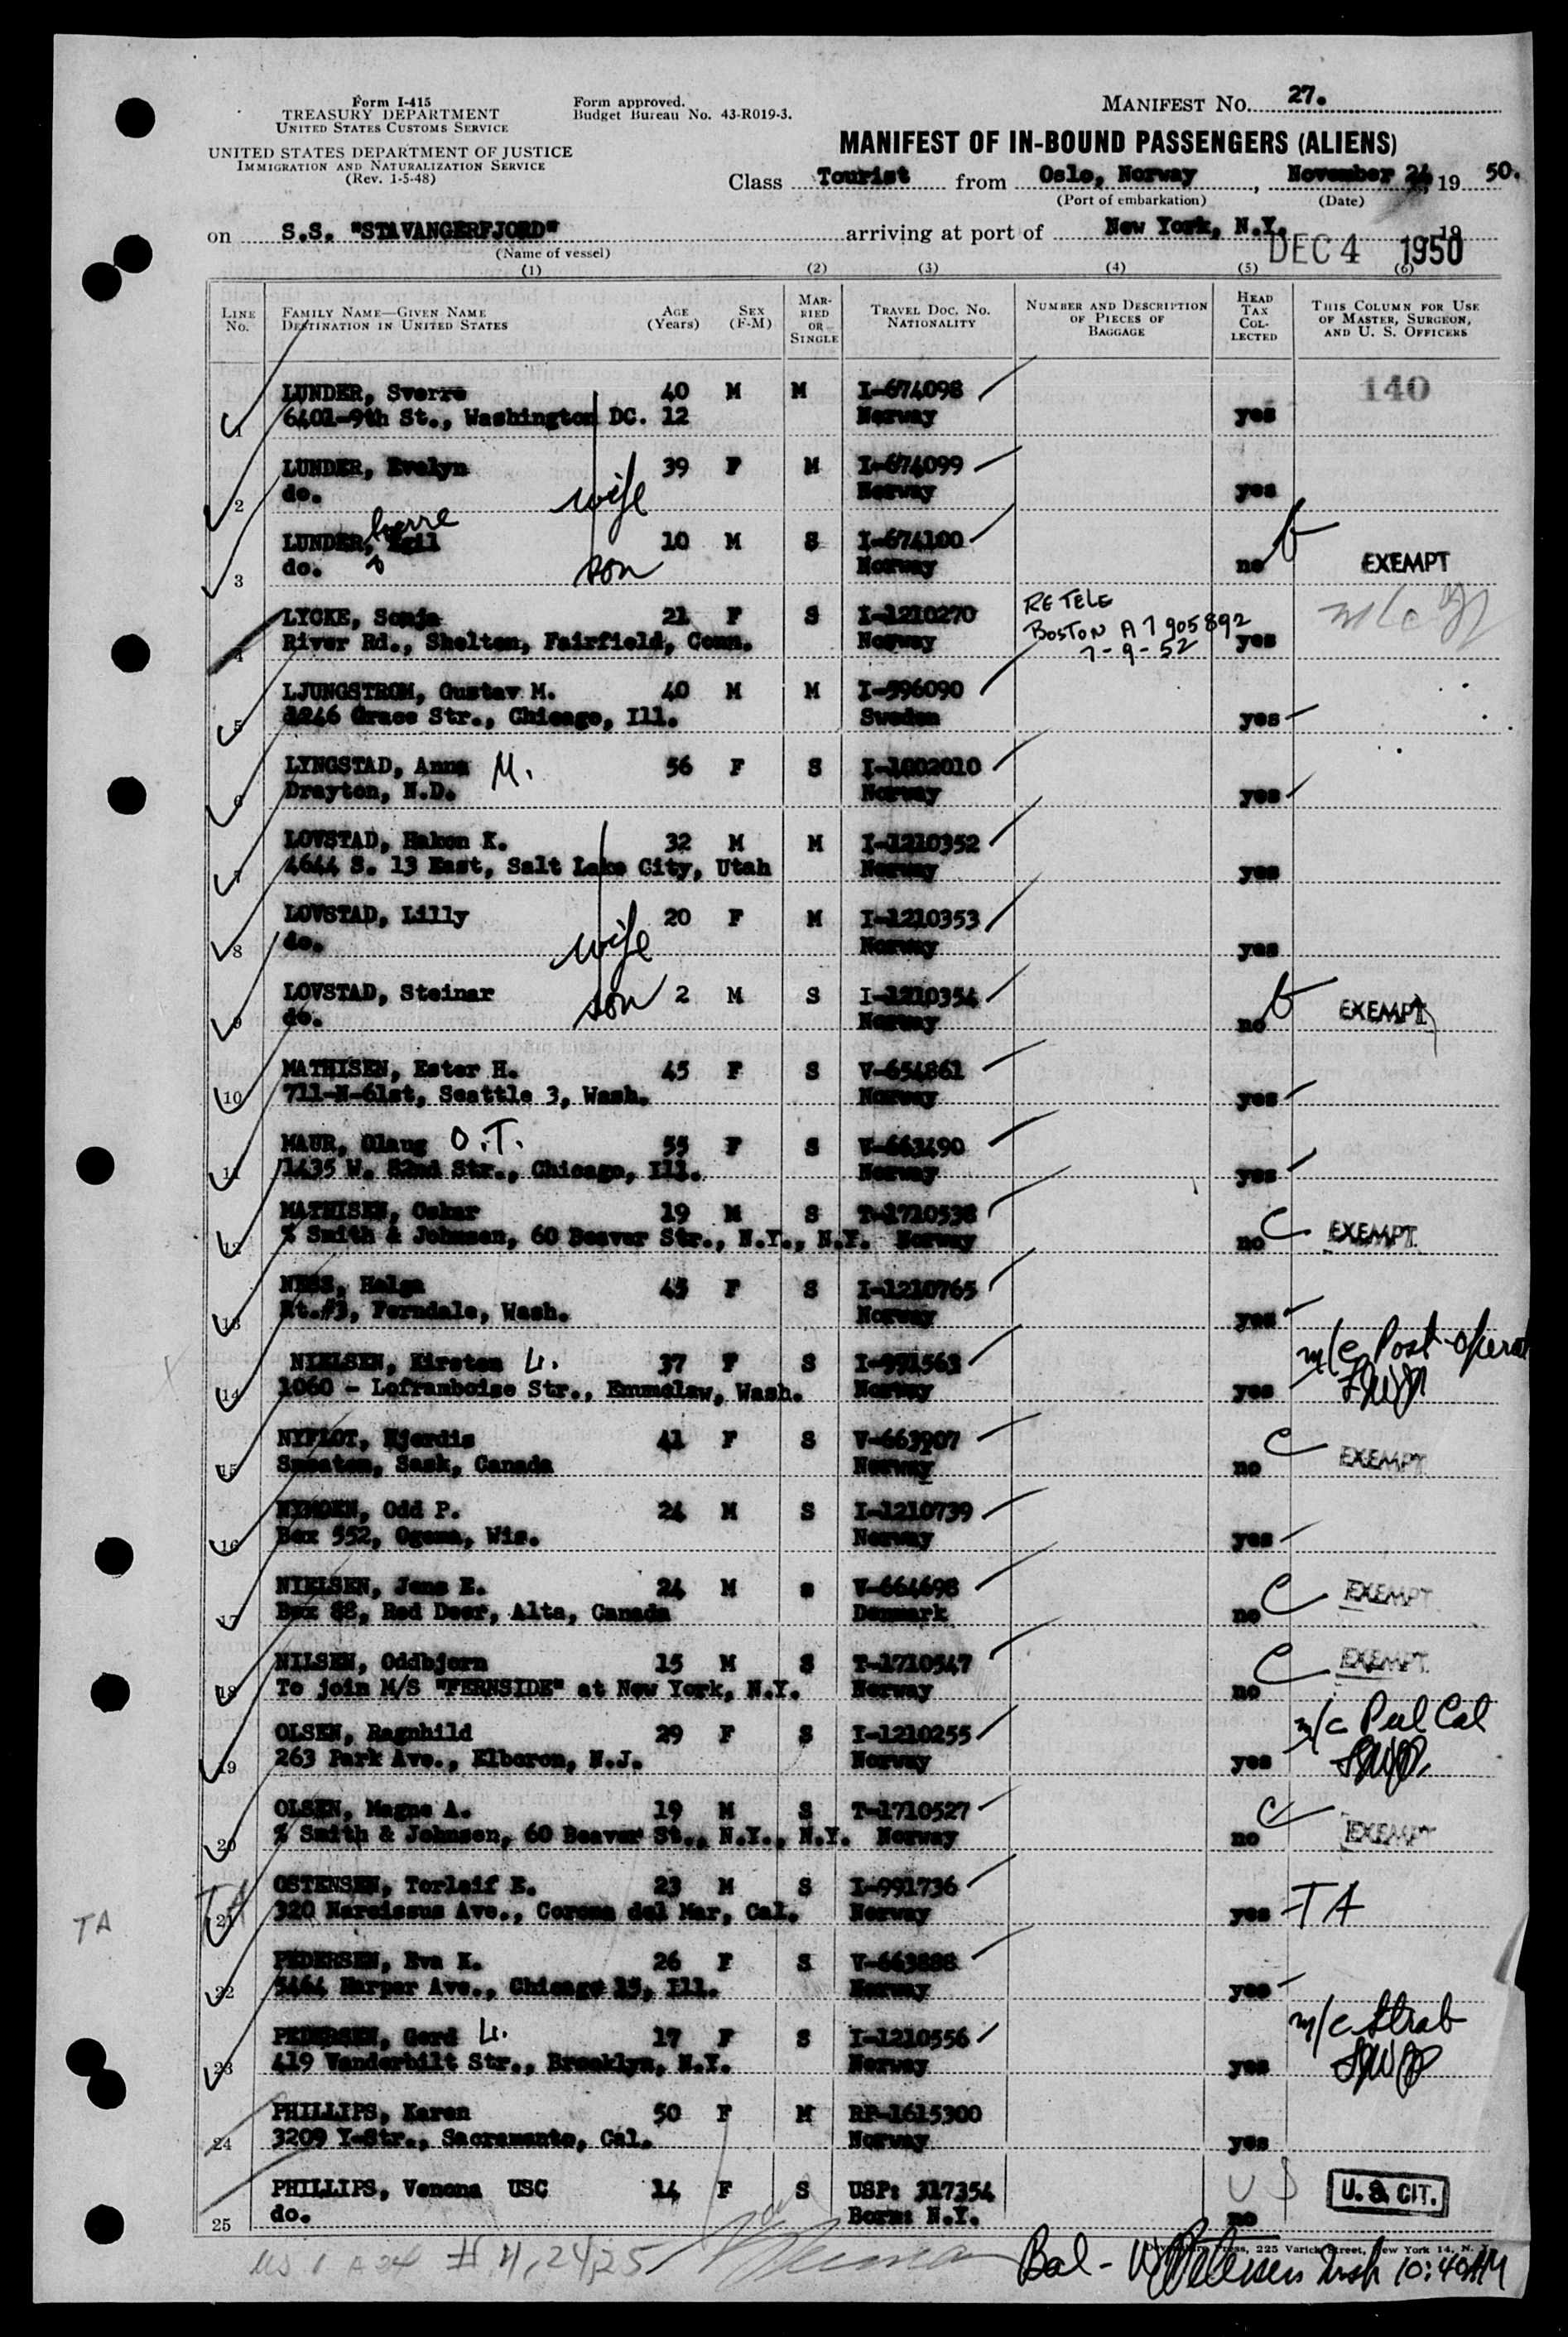 Form I-415
TREASURY DEPARTMENT
UNITED STATES CUSTOMS SERVICE
UNITED STATES DEPARTMENT OF JUSTICE
IMMIGRATION AND NATURALIZATION SERVICE
(Rev. 1-5-48)
Form approved.
Budget Bureau No. 43-R019-3.
MANIFEST NO. 27.
MANIFEST OF IN-BOUND PASSENGERS (ALIENS)
Class Tourist from Oslo, Norway, November 24, 19 50.
(Port of embarkation) (Date)
on S.S. "STAVANGERFJORD" arriving at port of New York, N.Y. 19
DEC 4 1950
(Name of vessel)
(1) (2) (3) (4) (5) (6)
LINE No. FAMILY NAME—GIVEN NAME DESTINATION IN UNITED STATES AGE (Years) SEX (F-M) MARRIED OR SINGLE TRAVEL DOC. NO. NATIONALITY NUMBER AND DESCRIPTION OF PIECES OF BAGGAGE HEAD TAX COLLECTED THIS COLUMN FOR USE OF MASTER, SURGEON, AND U. S. OFFICERS
LUNDER, Sverre 40 M M I-674098 140
1 6401-9th St., Washington DC. 12 Norway yes
LUNDER, Evelyn 39 F M I-674099
2 do. wife Norway yes
LUNDER, Egil Sverre 10 M S I-674100
3 do. son Norway no EXEMPT
LYCKE, Sonja 21 F S I-1210270 RE TELE
4 River Rd., Shelton, Fairfield, Conn. Norway BOSTON A7905892 yes
7-9-52
LJUNGSTROM, Gustav M. 40 M M I-996090
5 3246 Grace Str., Chicago, Ill. Sweden yes
LYNGSTAD, Anna M. 56 F S I-1002010
6 Drayton, N.D. Norway yes
LOVSTAD, Hakon K. 32 M M I-1210352
7 4644 S. 13 East, Salt Lake City, Utah Norway yes
LOVSTAD, Lilly 20 F M I-1210353
8 do. wife Norway yes
LOVSTAD, Steinar son 2 M S I-1210354
9 do. Norway no EXEMPT
MATHISEN, Ester H. 45 F S V-654861
10 711-N-61st, Seattle 3, Wash. Norway yes
MAUR, Olaug O.T. 55 F S V-663490
11 1435 W. 82nd Str., Chicago, Ill. Norway yes
MATHISEN, Oskar 19 M S T-1710538
12 % Smith & Johnsen, 60 Beaver Str., N.Y., N.Y. Norway no C EXEMPT
NESS, Helga 45 F S I-1210765
13 Rt.#3, Ferndale, Wash. Norway yes
NIELSEN, Kirsten 37 F S I-991563 m/c Post-opera
14 1060 - Loframboise Str., Enumclaw, Wash. Norway yes
NYFLOT, Hjordis 41 F S V-663907
15 Smeaton, Sask, Canada Norway no C EXEMPT
NYMOEN, Odd P. 24 M S I-1210739
16 Box 552, Ogema, Wis. Norway yes
NIELSEN, Jens E. 24 M s V-664698
17 Box 88, Red Deer, Alta, Canada Denmark no C EXEMPT
NILSEN, Oddbjorn 15 M S T-1710547
18 To join M/S "FERNSIDE" at New York, N.Y. Norway no C EXEMPT
OLSEN, Ragnhild 29 F S I-1210255 m/c Pul Cal
19 263 Park Ave., Elberon, N.J. Norway yes
OLSEN, Magne A. 19 M S T-1710527
20 % Smith & Johnsen, 60 Beaver St., N.Y., N.Y. Norway no C EXEMPT
OSTENSEN, Torleif E. 23 M S I-991736
TA 21 320 Narcissus Ave., Corona del Mar, Cal. Norway yes TA
PEDERSEN, Eva K. 26 F S V-663888
22 5464 Harper Ave., Chicago 15, Ill. Norway yes
PEDERSEN, Gerd 17 F S I-1210556 m/c Strab
23 419 Vanderbilt Str., Brooklyn, N.Y. Norway yes
PHILLIPS, Karen 50 F M RP-1615300
24 3209 Y-Str., Sacramento, Cal. Norway yes
PHILLIPS, Venona USC 14 F S USP: 317354 U. S. CIT.
25 do. Born: N.Y. no
# 4, 24, 25
Press, 225 Varick Street, New York 14, N. Y.
Bal - Petersen Insp 10:40 AM